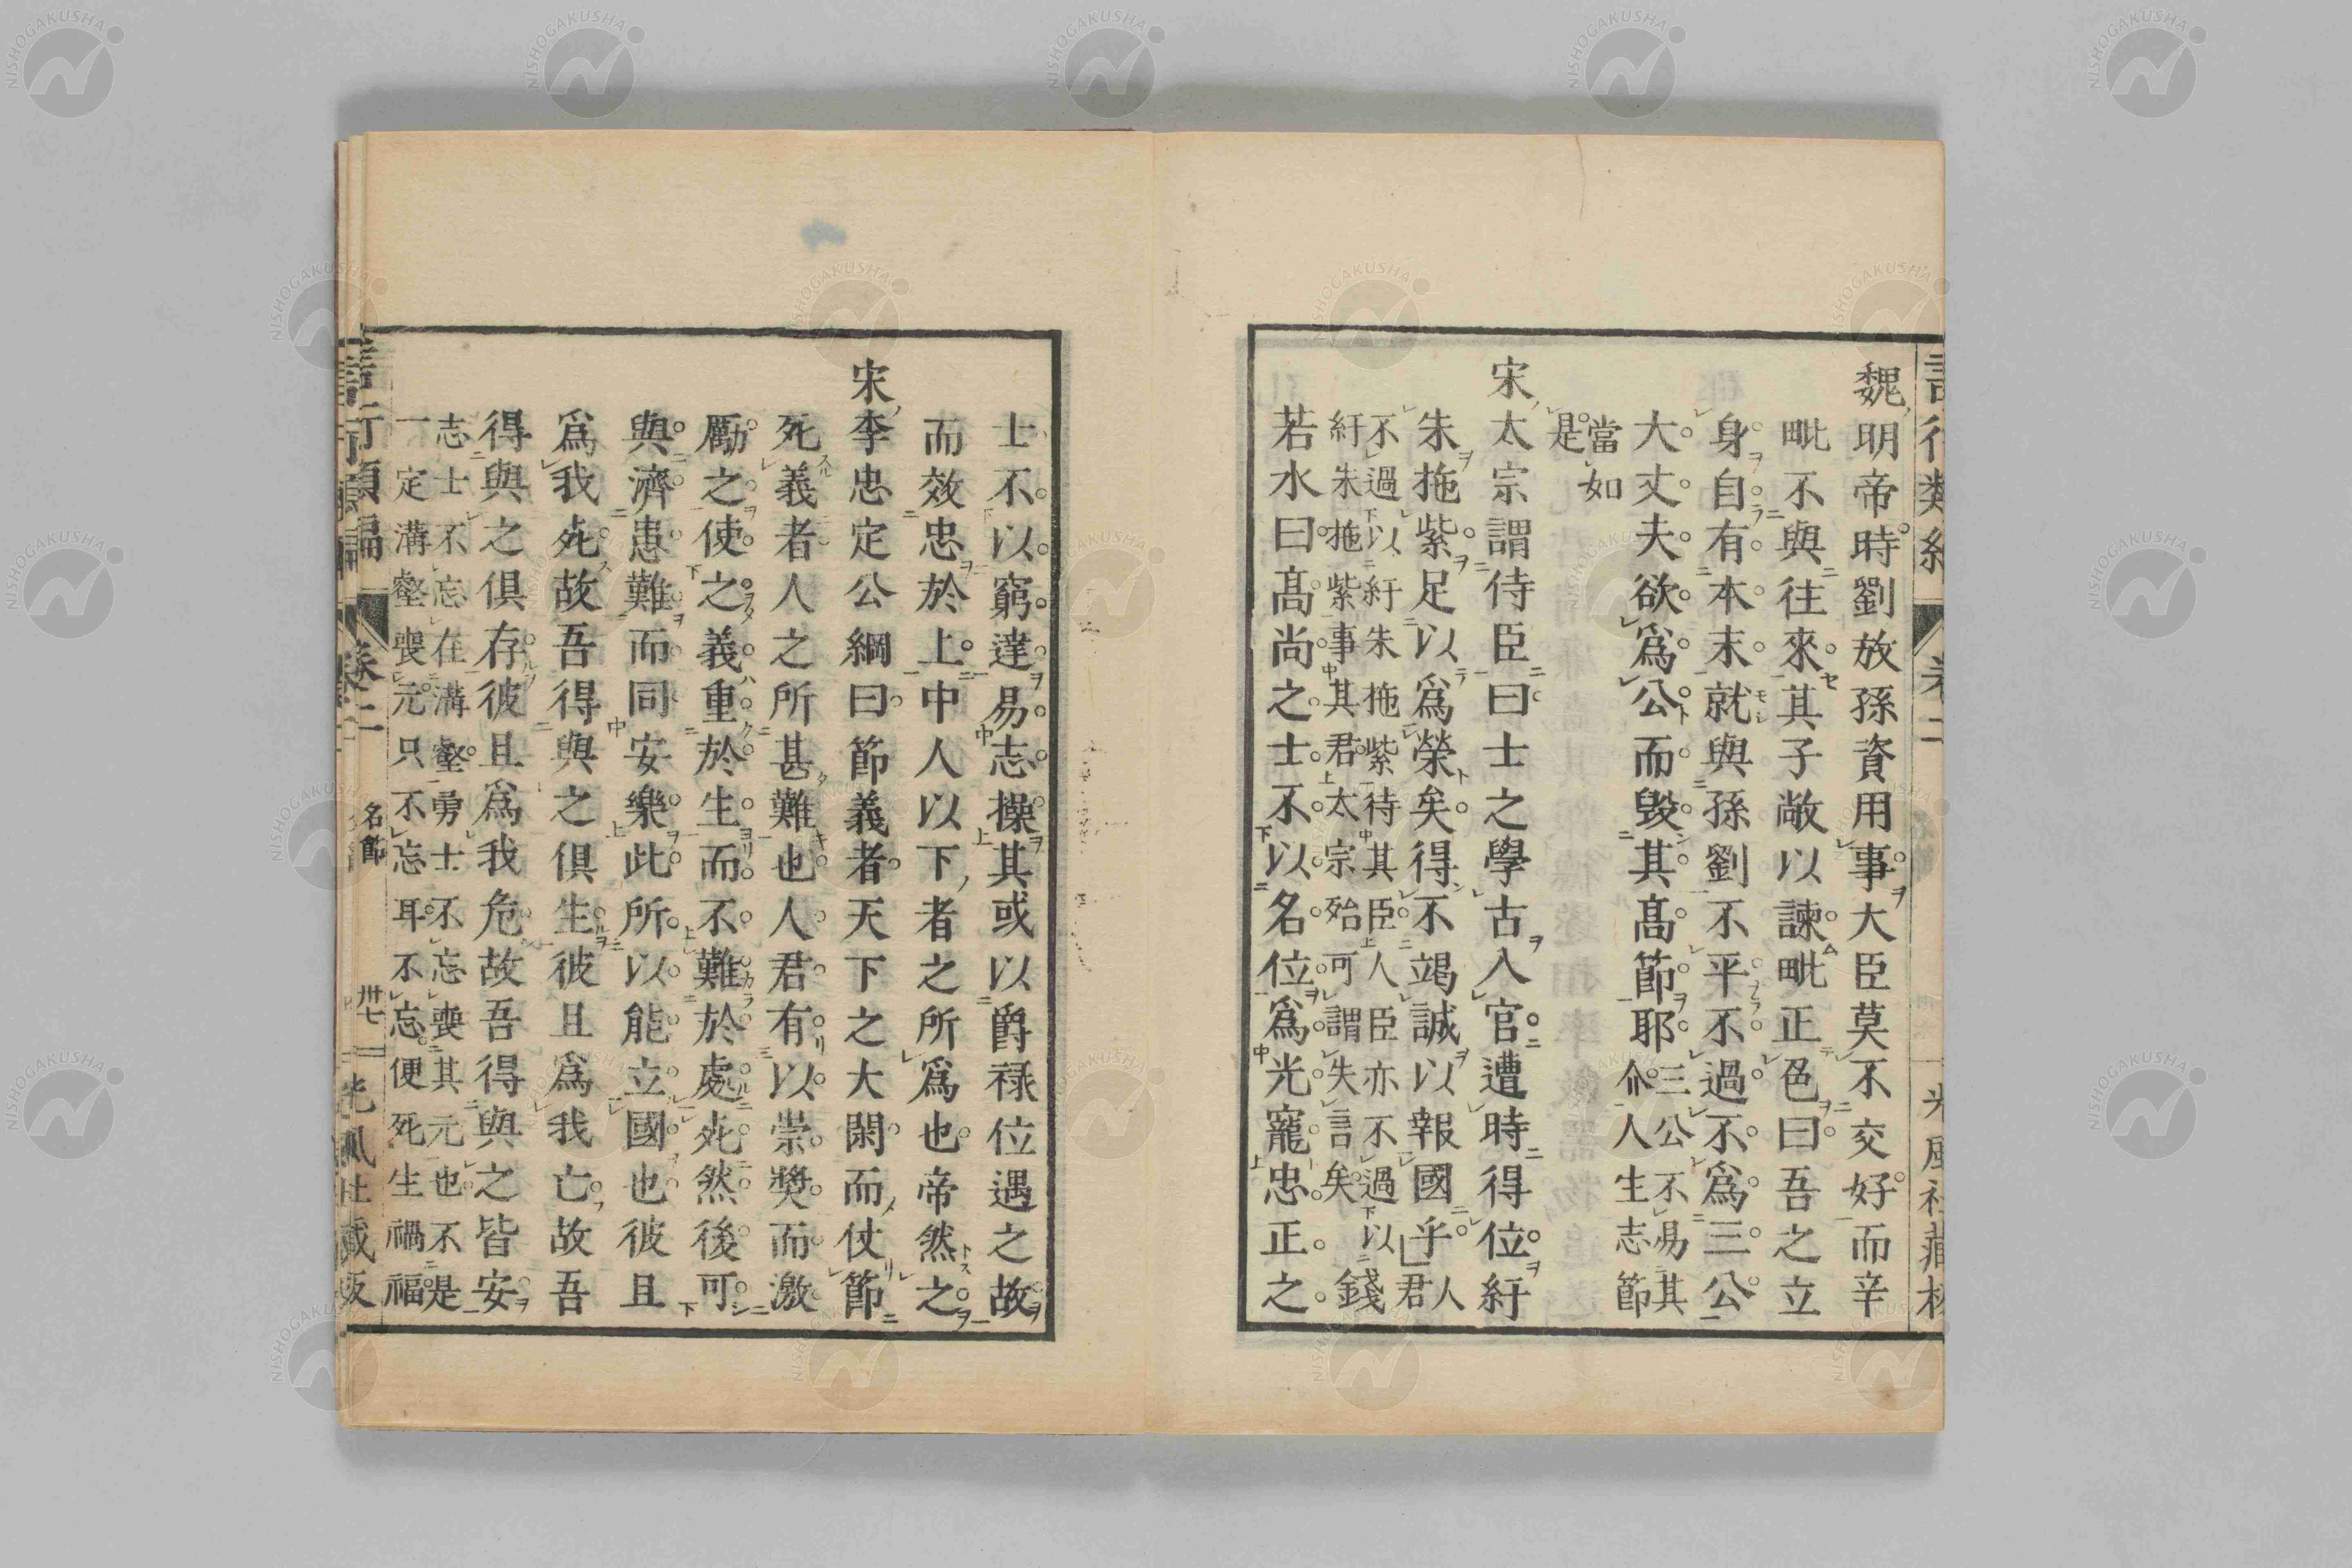 魏明帝時劉放孫資用事大臣莫不交好而辛
毗不與往來其子敞以諫毗正色曰吾之立
身自有本末就與孫劉不平不過不爲三公
大丈夫欲爲公而毀其髙節耶
三公不易其
介人生志節
當如
是
宋太宗謂侍臣曰士之學古入官遭時得位紆
朱拖紫足以爲榮矣得不竭誠以報國乎
人
君
不過以紆朱拖紫待其臣人臣亦不過以
紆朱拖紫事其君太宗殆可謂失言矣
錢
若水曰髙尚之士不以名位爲光寵忠正之
士不以窮達易志操其或以爵祿位遇之故
而效忠於上中人以下者之所爲也帝然之
宋李忠定公綱曰節義者天下之大閑而仗節
死義者人之所甚難也人君有以崇奬而激
勵之使之義重於生而不難於處死然後可
與濟患難而同安樂此所以能立國也彼且
爲我死故吾得與之俱生彼且爲我亡故吾
得與之俱存彼且爲我危故吾得與之皆安
志士不忘在溝壑勇士不忘喪其元也不是
一定溝壑喪元只不忘耳不忘便死生禍福
卷二 名節 卅七
NISHOGAKUSHA